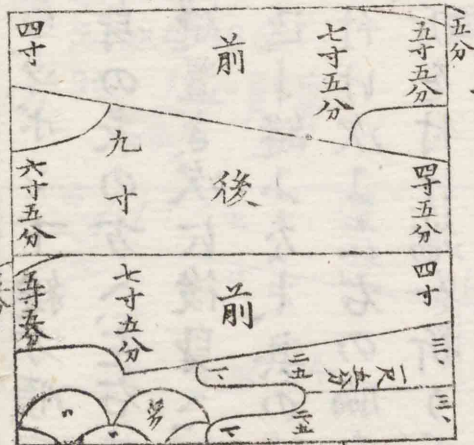 五分
五寸五分
七寸五分
前
四寸
四寸五分
後
九寸
六寸五分
四寸
前
七寸五分
五寸五分
三、
二五
一尺五分
三、
二五